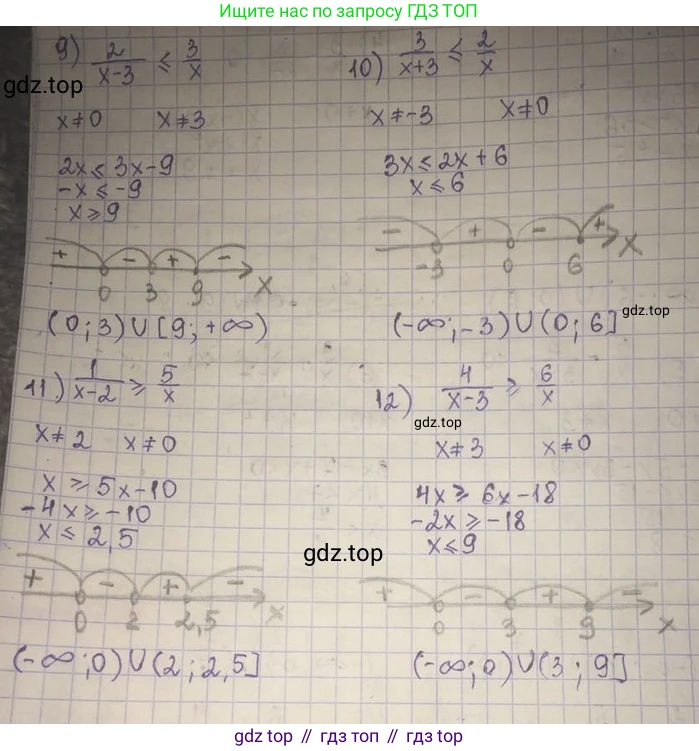 Ищите нас по запросу ГДЗ ТОП
9) 2/(x-3) ≤ 3/x
gdz.top
x≠0 x≠3
2x≤3x-9
-x≤-9
x≥9
+ - + -
0 3 9 x
(0;3)∪[9;+∞)
10) 3/(x+3) ≤ 2/x
x≠-3 x≠0
3x≤2x+6
x≤6
- + - +
-3 0 6 x
(-∞;-3)∪(0;6]
gdz.top
11) 1/(x-2) ≥ 5/x
x≠2 x≠0
x≥5x-10
-4x≥-10
x≤2,5
gdz.top
+ - + -
0 2 2,5 x
(-∞;0)∪(2;2,5]
12) 4/(x-3) ≥ 6/x
gdz.top
x≠3 x≠0
4x≥6x-18
-2x≥-18
x≤9
+ - + -
0 3 9 x
(-∞;0)∪(3;9]
gdz.top // гдз топ // gdz top // гдз.топ